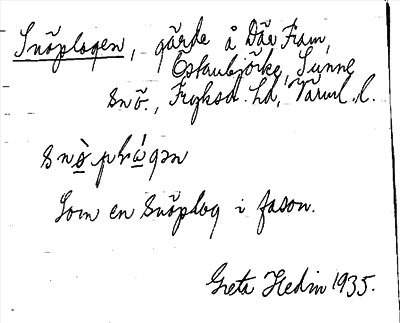 Snöplogen, gärde å Där Fram,
Östanbjörke, Sunne
sn., Fryksd. hd, Värml. l.
snö̀pɫṓgən
Som en snöplog i fason.
Greta Hedin 1935.